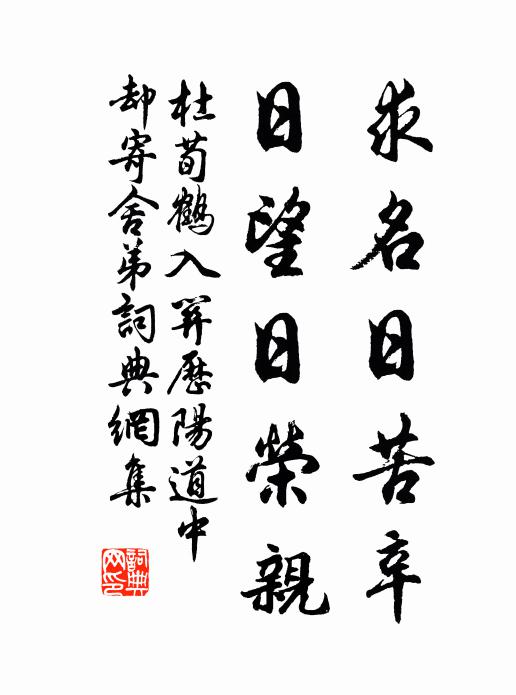 求名日苦辛
日望日榮親
杜荀鶴入關歷陽道中
却寄舍弟詞典網集
詞典网印